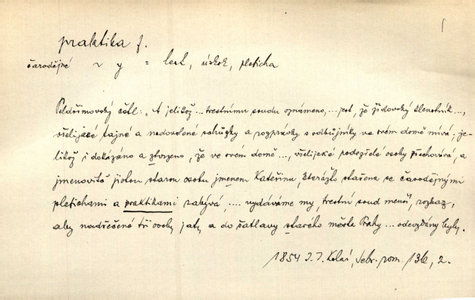 praktika f.
čarodějné v y = lest, úskok, pleticha
četl: „A jelikož... trestnímu soudu oznámeno,... jest, že židovský zlatník...,
všelijaké tajné a nedovolené schůzky a rozprávky s odbojníky na svém domě mívá, je-
likož i dokázáno a ztvrzeno, že ve svém domě..., všelijaké podezřelé osoby přechovává, a
jmenovitě jednu starou osobu jmenem Kateřina, kterážto stařena se čarodějnými
pletichami a praktikami zabývá, .... vydáváme my, trestní soud menší, rozkaz,
aby nadřečené tři osoby jaty a do šatlavy starého města Prahy... odevzdány byly.
1854 J. J. Kolár, Sebr. rom. 136, 2.